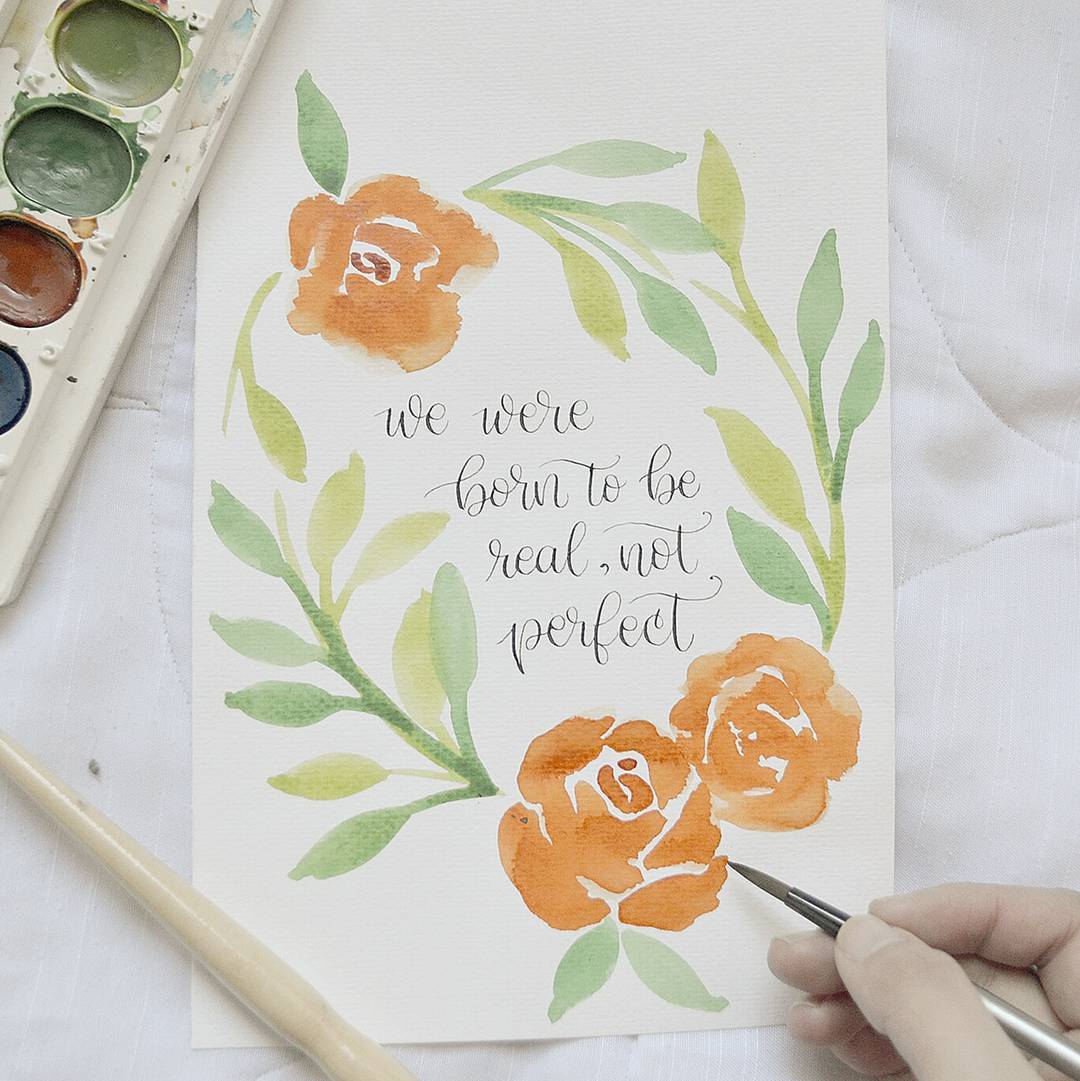 we were
born to be
real, not
perfect